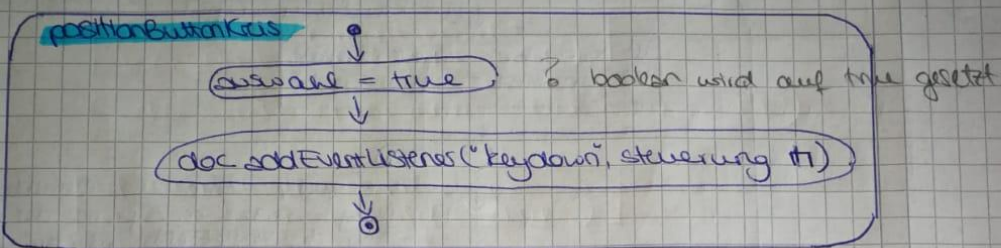 positionButtonKreis
auswahl = true ? boolean wird auf true gesetzt
doc.addEventListener("keydown", steuerung H)